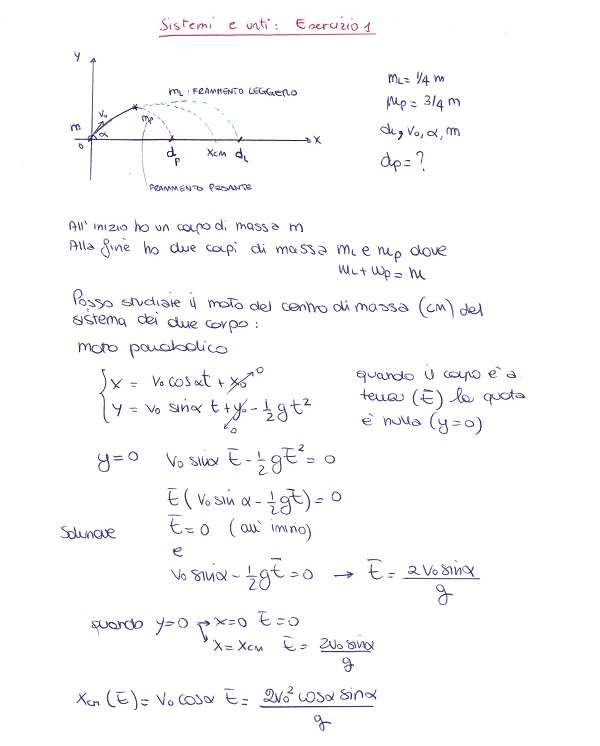 Sistemi e urti: Esercizio 1
y
mL: FRAMMENTO LEGGERO
mL = 1/4 m
mp = 3/4 m
dL, v0, α, m
dp = ?
v0
mp
m
α
0
dp
xCM
dL
x
FRAMMENTO PESANTE
All' inizio ho un corpo di massa m
Alla fine ho due corpi di massa mL e mp dove
mL + mp = m
Posso studiare il moto del centro di massa (CM) del
sistema dei due corpo:
moto parabolico
x = v0 cosα t + x0 → 0
y = v0 sinα t + y0 - 1/2 g t²
0
quando il corpo è a
terra (t̄) la quota
è nulla (y=0)
y=0 v0 sinα t̄ - 1/2 g t̄² = 0
t̄ (v0 sin α - 1/2 g t̄) = 0
Soluzione t̄ = 0 (all' inizio)
e
v0 sinα - 1/2 g t̄ = 0 → t̄ = 2 v0 sinα / g
quando y=0 → x=0 t̄=0
→ x = xCM t̄ = 2v0 sinα / g
xCM (t̄) = v0 cosα t̄ = 2v0² cosα sinα / g